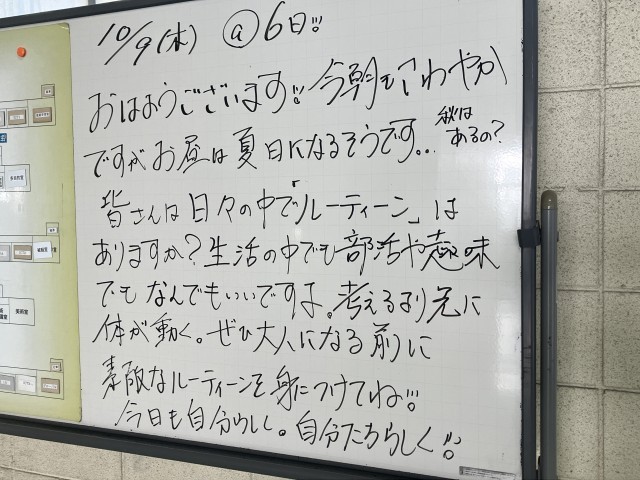 10/9(木) @6日!!
おはようございます!! 今朝もさわやか
ですがお昼は夏日になるそうです… 秋はあるの?
皆さんは日々の中で「ルーティーン」は
ありますか?生活の中でも部活や趣味
でもなんでもいいですよ。考えるより先に
体が動く。ぜひ大人になる前に
素敵なルーティーンを身につけてね!!
今日も自分らしく。自分たちらしく!!
美術室